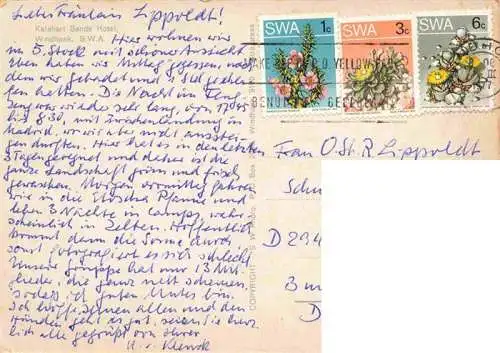 Liebes Fräulein Lippoldt!
Kalahari Sands Hotel,
Windhoek, S.W.A.
Hier wohnen wir
im 5. Stock mit schöner Aussicht
oben haben wir Mittag gegessen, nach
dem wir gebadet und 3 Std geschla-
fen hatten. Die Nacht im Flug-
zeug war wieder sehr lang, von 17 Uhr
bis 8:30, mit Zwischenlandung in
Madrid, wo wir aber nicht ausstei-
gen durften. Hier hat es in den letzten
3 Tagen geregnet und daher ist die
ganze Landschaft grün und frisch
gewaschen. Morgen vormittag fahren
wir in die Etoscha Pfanne und
leben 3 Nächte in Camps, wahr-
scheinlich in Zelten. Hoffentlich
kommt dann die Sonne durch
sonst fotografiert es sich schlecht
Unsere Gruppe hat nur 13 Mit-
glieder, die ganz nett scheinen,
sodass ich guten Mutes bin.
Ich hoffe, Ihnen allen und den
Hunden geht es gut, seien Sie herz-
lich alle gegrüßt von Ihrer
H. v. Klenck
COPYRIGHT
SWA 1c
SWA 3c
SWA 6c
Frau O.St.R. Lippoldt
Schu
D 294
D